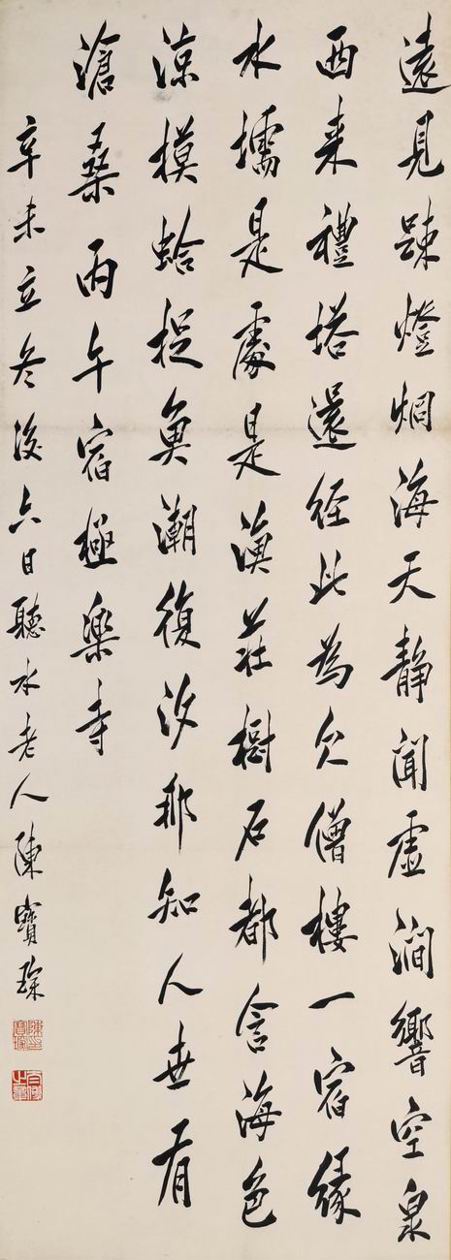 遠見踈燈烱海天靜聞虛澗響空泉
西来禮塔還經此為欠僧樓一宿緣
水壖是處是漁莊樹石都含海色
涼摸蛤捉魚潮復汐那知人世有
滄桑丙午宿極樂寺
辛未立冬後六日聽水老人陳寶琛